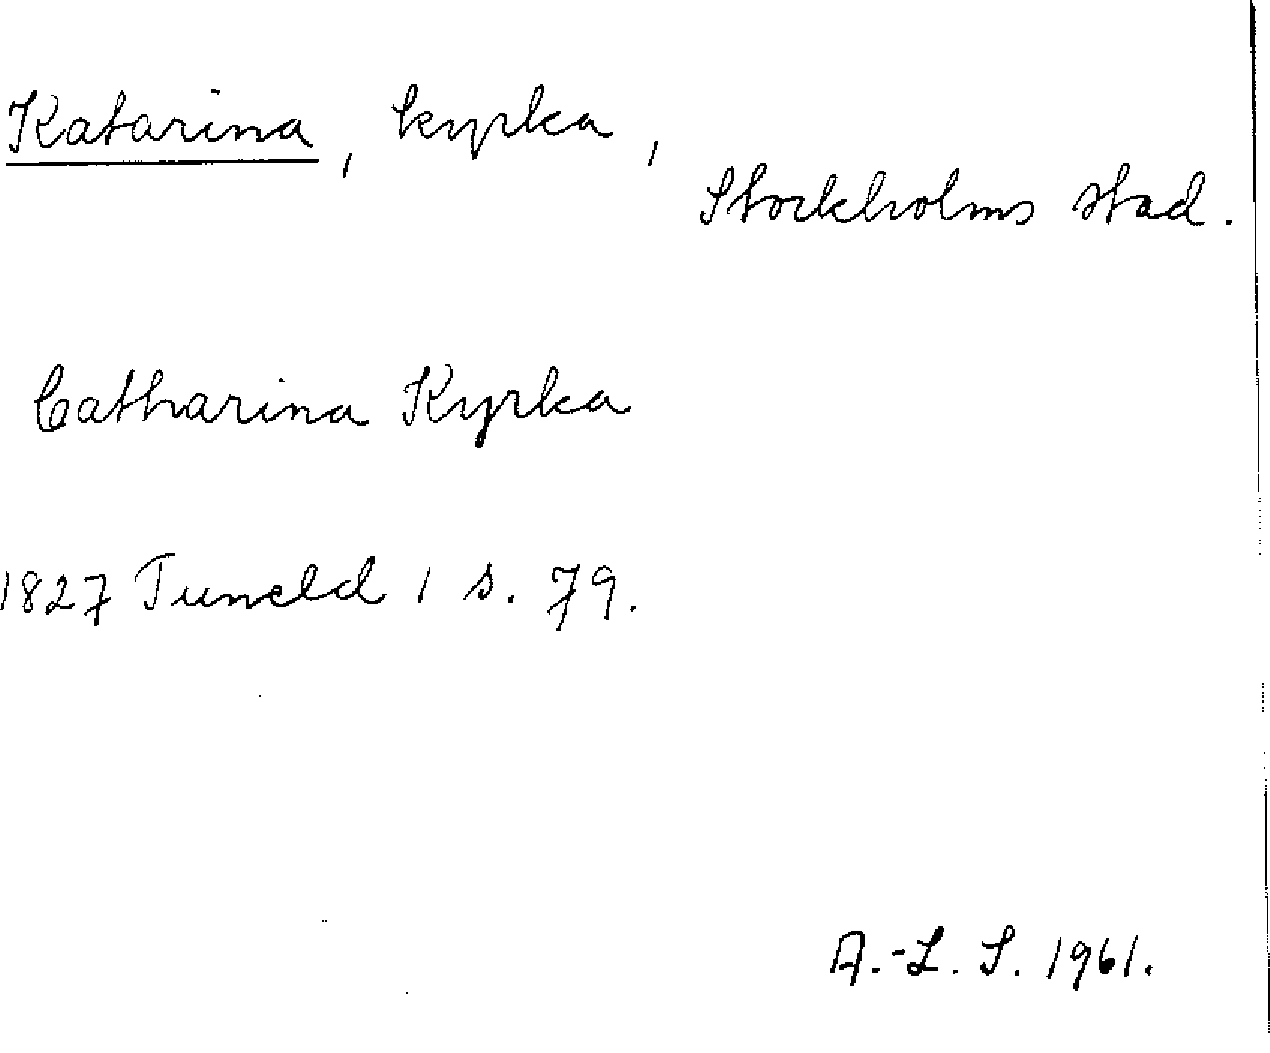 Katarina, kyrka,
Stockholms stad.
Catharina Kyrka
1827 Tuneld 1 s. 79.
A.-L. S. 1961.